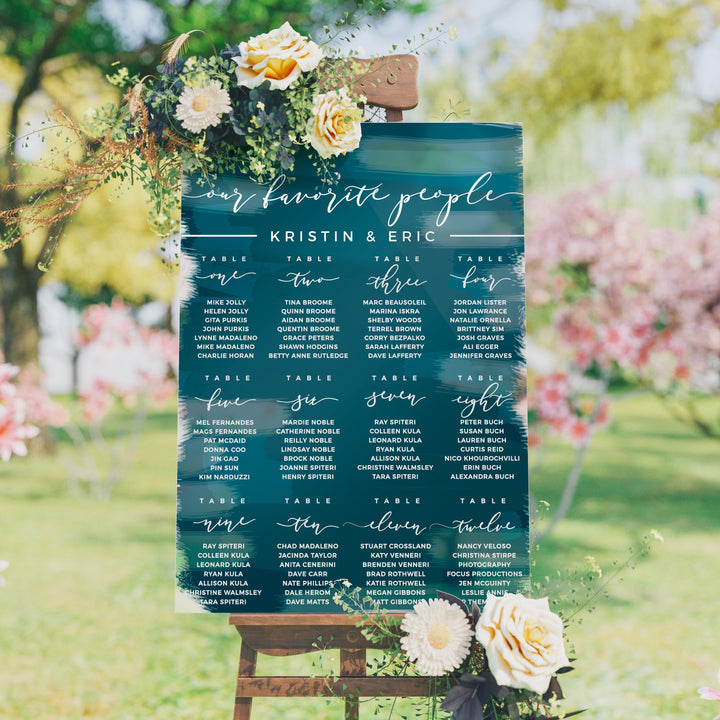 our favorite people
KRISTIN & ERIC
TABLE
one
MIKE JOLLY
HELEN JOLLY
GITA PURKIS
JOHN PURKIS
LYNNE MADALENO
MIKE MADALENO
CHARLIE HORAN
TABLE
two
TINA BROOME
QUINN BROOME
AIDAN BROOME
QUENTIN BROOME
GRACE PETERS
SHAWN HODGINS
BETTY ANNE RUTLEDGE
TABLE
three
MARC BEAUSOLEIL
MARINA ISKRA
SHELBY WOODS
TERREL BROWN
CORRY BEZPALKO
SARAH LAFFERTY
DAVE LAFFERTY
TABLE
four
JORDAN LISTER
JON LAWRANCE
NATALIE ORNELLA
BRITTNEY SIM
JOSH GRAVES
ALI EGGER
JENNIFER GRAVES
TABLE
five
MEL FERNANDES
MAGS FERNANDES
PAT MCDAID
DONNA COO
JIN GAO
PIN SUN
KIM NARDUZZI
TABLE
six
MARDIE NOBLE
CATHERINE NOBLE
REILLY NOBLE
LINDSAY NOBLE
BROCK NOBLE
JOANNE SPITERI
HENRY SPITERI
TABLE
seven
RAY SPITERI
COLLEEN KULA
LEONARD KULA
RYAN KULA
ALLISON KULA
CHRISTINE WALMSLEY
TARA SPITERI
TABLE
eight
PETER BUCH
SUSAN BUCH
LAUREN BUCH
CURTIS REID
NICO KHOUROCHVILLI
ERIN BUCH
ALEXANDRA BUCH
TABLE
nine
RAY SPITERI
COLLEEN KULA
LEONARD KULA
RYAN KULA
ALLISON KULA
CHRISTINE WALMSLEY
TARA SPITERI
TABLE
ten
CHAD MADALENO
JACINDA TAYLOR
ANITA CENERINI
DAVE CARR
NATE PHILLIPS
DALE HEROM
DAVE MATTS
TABLE
eleven
STUART CROSSLAND
KATY VENNERI
BRENDEN VENNERI
BRAD ROTHWELL
KATIE ROTHWELL
MEGAN GIBBONS
MATT GIBBONS
TABLE
twelve
NANCY VELOSO
CHRISTINA STIRPE
PHOTOGRAPHY
FOCUS PRODUCTIONS
JEN MCGUINTY
LESLIE ANNIS
THEMENS